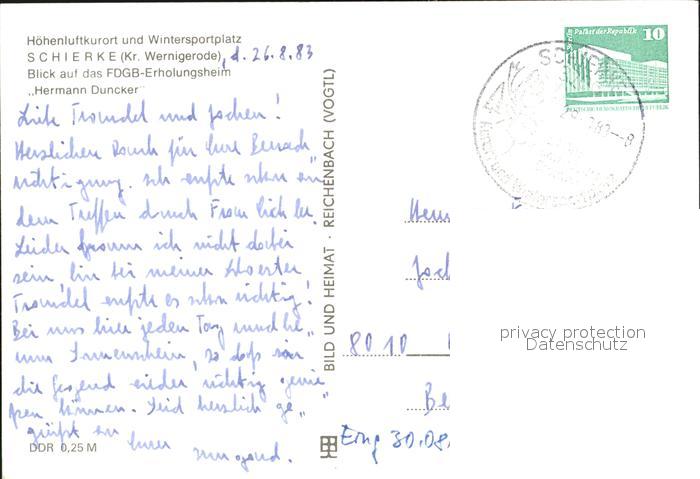 Höhenluftkurort und Wintersportplatz
SCHIERKE (Kr. Wernigerode), d. 26.8.83
Blick auf das FDGB-Erholungsheim
„Hermann Duncker"
Liebe Traudel und Jochen!
Herzlichen Dank für Eure Benach„
richtigung. Ich
dem Treffen durch Frau
Leider kann ich nicht dabei
sein, bin bei meiner
Traudel es schon richtig!
Bei uns hier jeden Tag
Sonnenschein, so daß wir
die Gegend wieder richtig genie„
ßen können. Seid herzlich ge„
grüßt von Eurer
Irmgard.
DDR 0,25 M
BILD UND HEIMAT · REICHENBACH (VOGTL)
Berlin Palast der Republik 10
DEUTSCHE DEMOKRATISCHE REPUBLIK
SCHIERKE
Herrn
Joc
8010
Be
Eing 30.08.
privacy protection
Datenschutz